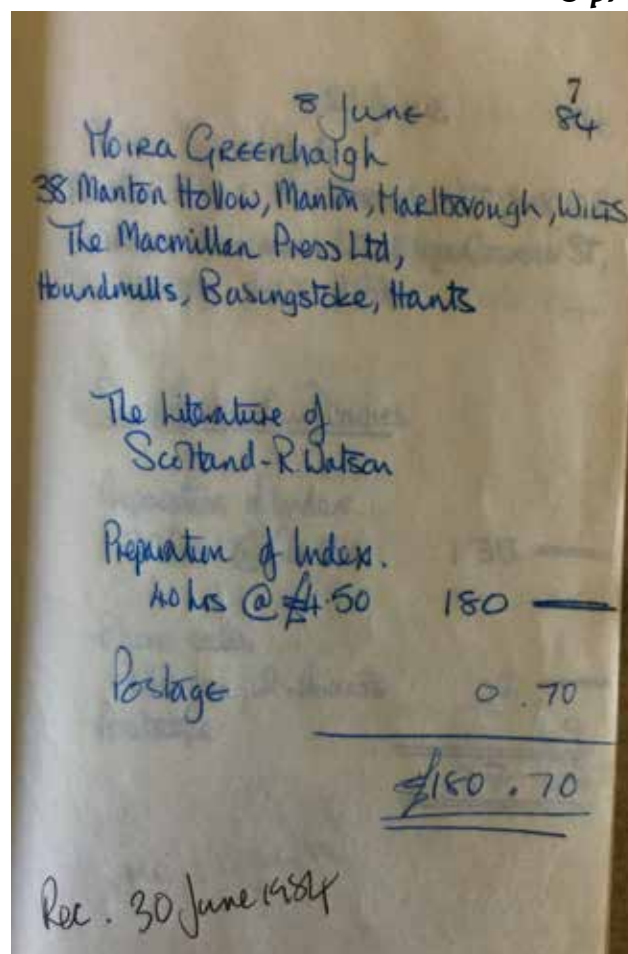 7
8 June 84
Moira Greenhalgh
38 Manton Hollow, Manton, Marlborough, Wilts
The Macmillan Press Ltd,
Houndmills, Basingstoke, Hants
The Literature of
Scotland - R. Watson
Preparation of Index.
40 hrs @ £4.50 180 —
Postage 0.70
£180.70
Rec. 30 June 1984